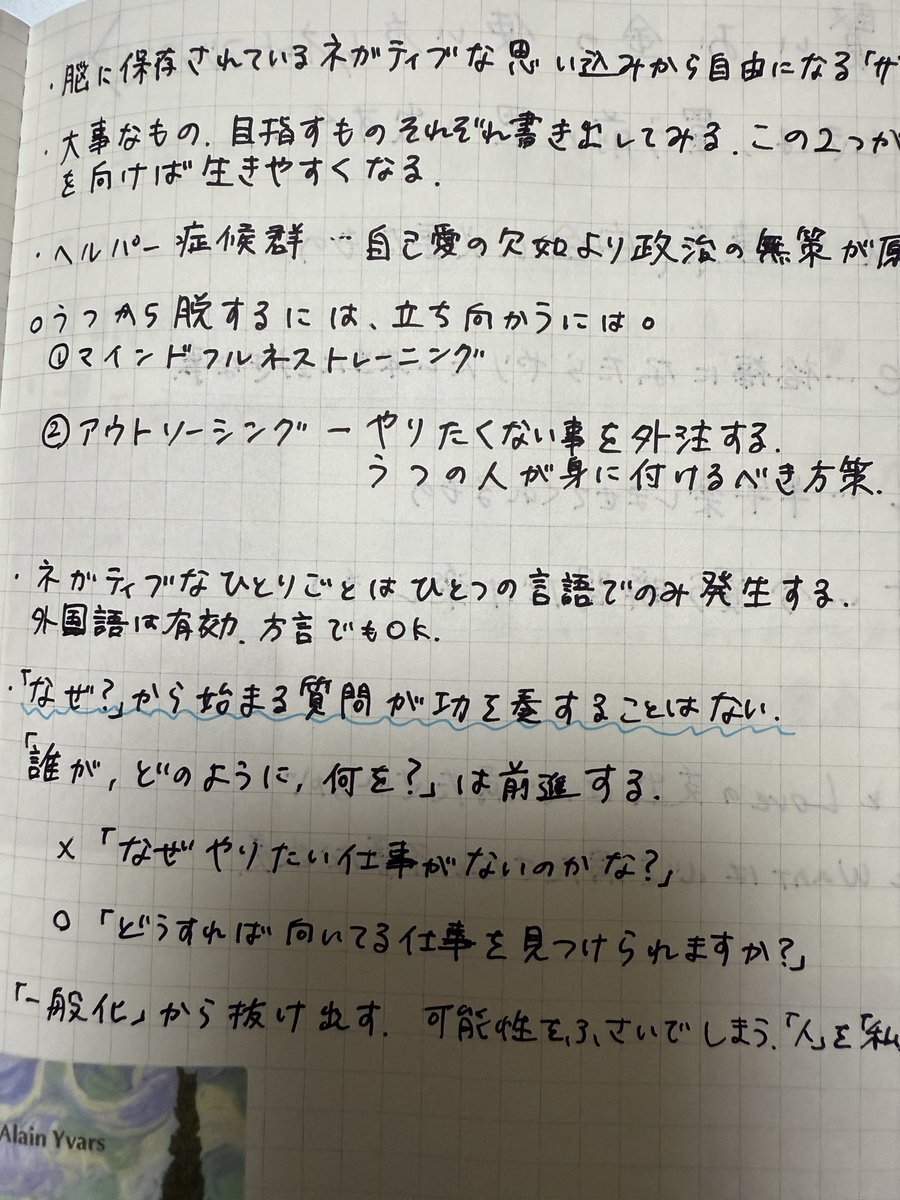 ・脳に保存されているネガティブな思い込みから自由になる「サ
・大事なもの、目指すものそれぞれ書き出してみる。この2つが
を向けば生きやすくなる。
・ヘルパー症候群…自己愛の欠如より政治の無策が原
○うつから脱するには、立ち向かうには。
①マインドフルネストレーニング
②アウトソーシング ー やりたくない事を外注する。
うつの人が身に付けるべき方策。
・ネガティブなひとりごとはひとつの言語でのみ発生する。
外国語は有効。方言でもOK.
・「なぜ?」から始まる質問が功を奏することはない。
「誰が、どのように、何を?」は前進する。
×「なぜやりたい仕事がないのかな?」
○「どうすれば向いてる仕事を見つけられますか?」
「一般化」から抜け出す. 可能性をふさいでしまう.「人」を「私
Alain Yvars